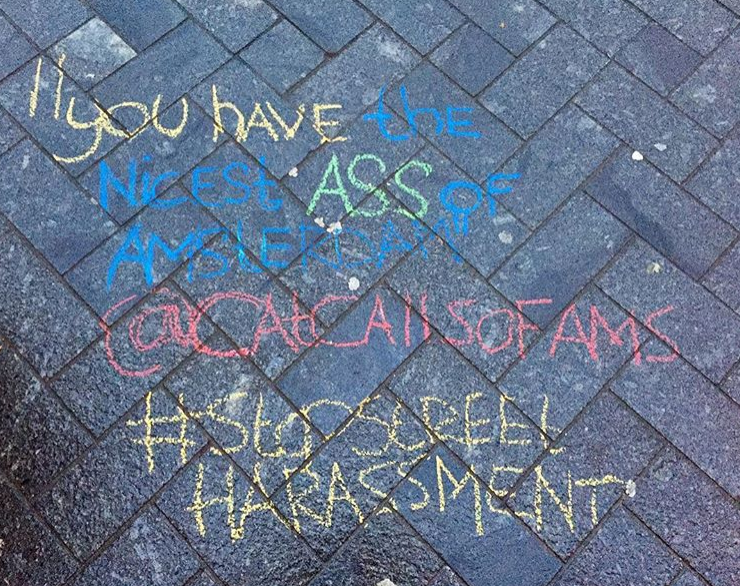 "you have the
Nicest ASS OF
AMSterDAM"
@CAtCAllSOFAMS
#Stop StREEt
HARASSMENT